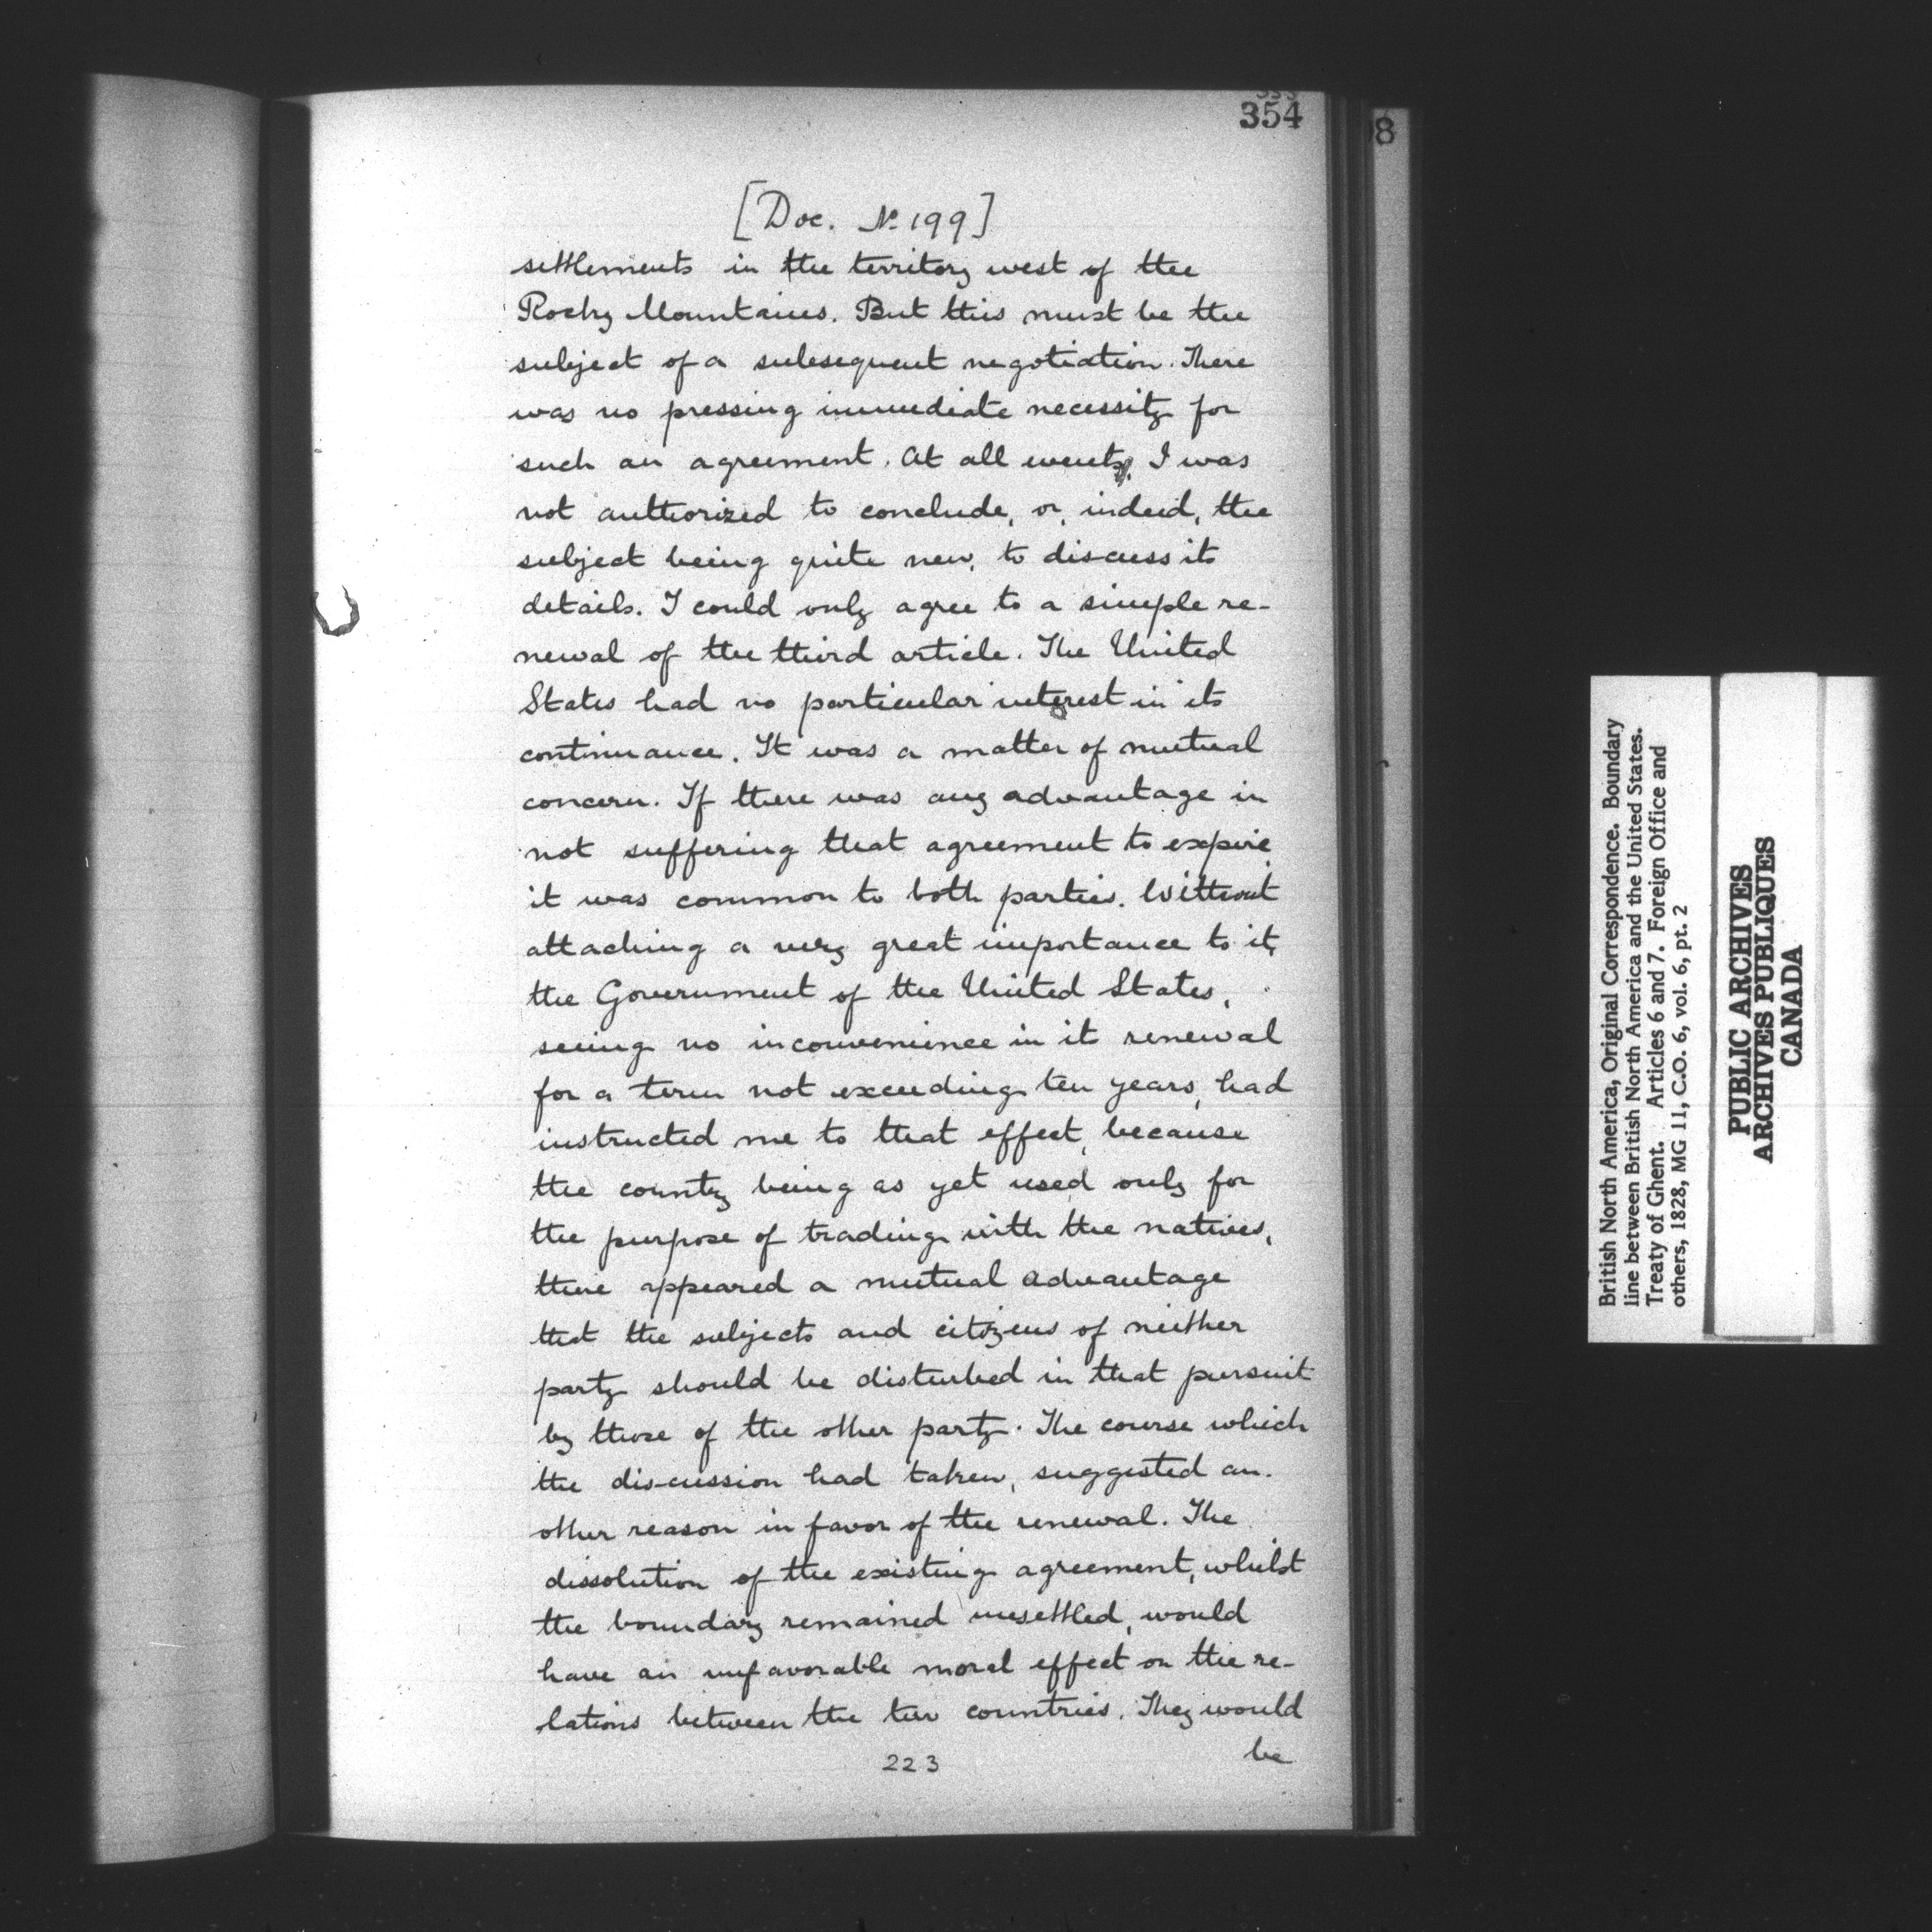 354
8
[Doc. No. 199]
settlements in the territory west of the
Rocky Mountains. But this must be the
subject of a subsequent negotiation. There
was no pressing immediate necessity for
such an agreement. At all events, I was
not authorized to conclude, or, indeed, the
subject being quite new, to discuss its
details. I could only agree to a simple re-
newal of the third article. The United
States had no particular interest in its
continuance. It was a matter of mutual
concern. If there was any advantage in
not suffering that agreement to expire,
it was common to both parties. Without
attaching a very great importance to it,
the Government of the United States,
seeing no inconvenience in it renewal
for a term not exceeding ten years, had
instructed me to that effect, because
the country being as yet used only for
the purpose of trading with the natives,
there appeared a mutual advantage
that the subjects and citizens of neither
party should be disturbed in that pursuit
by those of the other party. The course which
the discussion had taken, suggested an-
other reason in favor of the renewal. The
dissolution of the existing agreement, whilst
the boundary remained unsettled, would
have an unfavorable moral effect on the re-
lations between the two countries. They would
be
223
British North America, Original Correspondence. Boundary
line between British North America and the United States.
Treaty of Ghent. Articles 6 and 7. Foreign Office and
others, 1828, MG 11, C.O. 6, vol. 6, pt. 2
PUBLIC ARCHIVES
ARCHIVES PUBLIQUES
CANADA